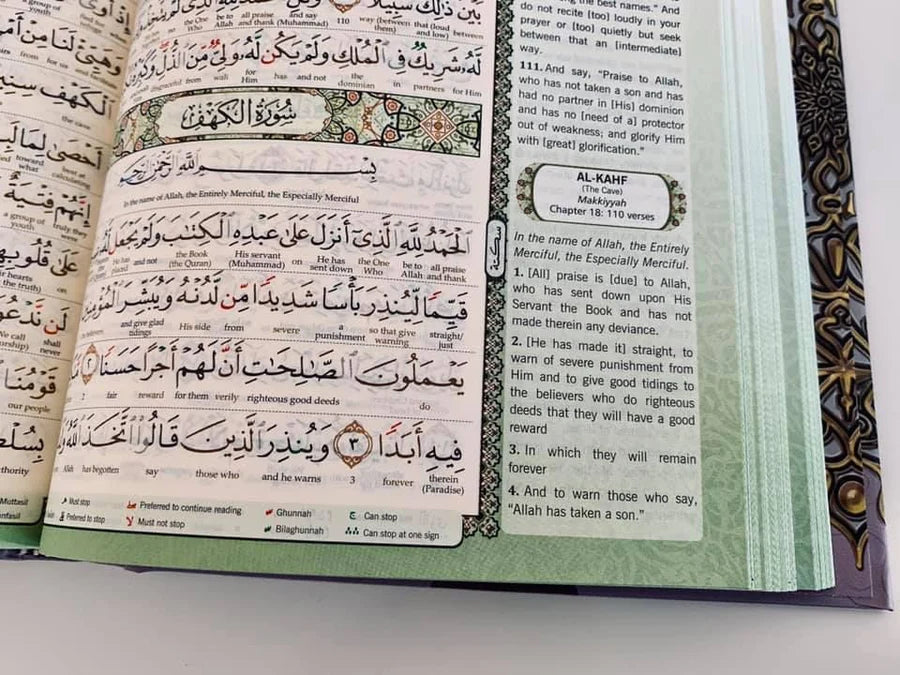 بَيْنَ ذَٰلِكَ سَبِيلًا
110 way (between that (loud between
them) and low)
say and all praise be to the One has
Allah and thank (Muhammad) Who
لَّهُۥ شَرِيكٌ فِى ٱلْمُلْكِ وَلَمْ يَكُن لَّهُۥ وَلِىٌّ مِّنَ ٱلذُّلِّ وَكَبِّرْهُ
for Him partners in the dominian and not has for Him wali from
سُورَةُ الْكَهْفِ
بِسْمِ ٱللَّهِ ٱلرَّحْمَٰنِ ٱلرَّحِيمِ
In the name of Allah, the Entirely Merciful, the Especially Merciful
ٱلْحَمْدُ لِلَّهِ ٱلَّذِىٓ أَنزَلَ عَلَىٰ عَبْدِهِ ٱلْكِتَٰبَ وَلَمْ يَجْعَل
all praise and thank be to Allah the One Who He has sent down on His servant (Muhammad) the Book (the Quran) and not He has placed
قَيِّمًا لِّيُنذِرَ بَأْسًا شَدِيدًا مِّن لَّدُنْهُ وَيُبَشِّرَ ٱلْمُؤْمِنِينَ
straight/just so that give warning a punishment severe from His side and give glad tidings
يَعْمَلُونَ ٱلصَّٰلِحَٰتِ أَنَّ لَهُمْ أَجْرًا حَسَنًا ٢
do righteous good deeds verily for them reward fair 2
فِيهِ أَبَدًا ٣ وَيُنذِرَ ٱلَّذِينَ قَالُوا۟ ٱتَّخَذَ ٱللَّهُ
therein (Paradise) forever 3 and he warns those who say has begotten Allah
Must stop Preferred to continue reading Ghunnah Can stop
Preferred to stop Must not stop Bilaghunnah Can stop at one sign
the best names." And
do not recite [too] loudly in your
prayer or [too] quietly but seek
between that an [intermediate]
way.
111. And say, "Praise to Allah,
who has not taken a son and has
had no partner in [His] dominion
and has no [need of a] protector
out of weakness; and glorify Him
with [great] glorification."
AL-KAHF
(The Cave)
Makkiyyah
Chapter 18: 110 verses
In the name of Allah, the Entirely
Merciful, the Especially Merciful.
1. [All] praise is [due] to Allah,
who has sent down upon His
Servant the Book and has not
made therein any deviance.
2. [He has made it] straight, to
warn of severe punishment from
Him and to give good tidings to
the believers who do righteous
deeds that they will have a good
reward
3. In which they will remain
forever
4. And to warn those who say,
"Allah has taken a son."
سكتة
وَهَيِّئْ لَنَا مِنْ
for us from
ٱلْكَهْفِ سِنِينَ
the cave
أَحْصَىٰ لِمَا
إِنَّهُمْ فِتْيَةٌ
truly they were a group of youth
عَلَىٰ قُلُوبِهِمْ
on
لَن نَّدْعُوَا۟
shall never
قَوْمُنَا
our people